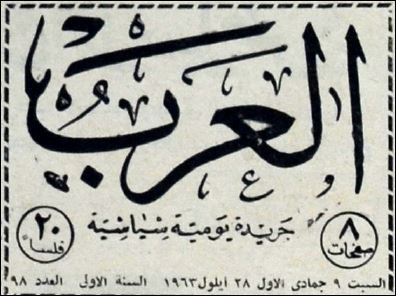 العرب
جريدة يومية سياسية
٨
صفحات
٢٠
فلساً
السبت ٩ جمادى الاول ٢٨ ايلول ١٩٦٣ السنة الاولى العدد ٩٨